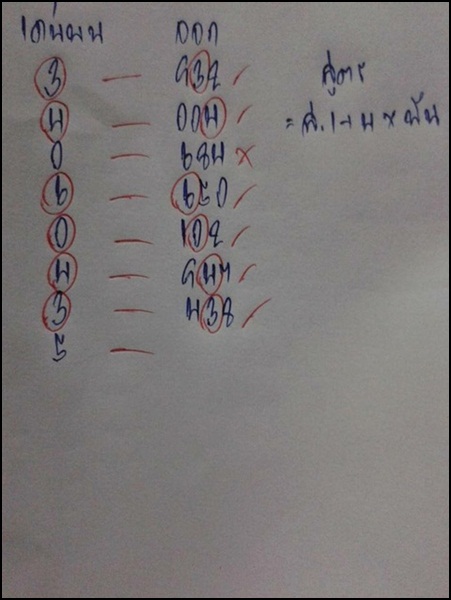 เด่นบน ออก
3 — 932 ✓ สูตร
4 — 004 ✓ = ส.1-4 × พัน
0 — 684 ×
6 — 650 ✓
0 — 102 ✓
4 — 947 ✓
3 — 438 ✓
5 —